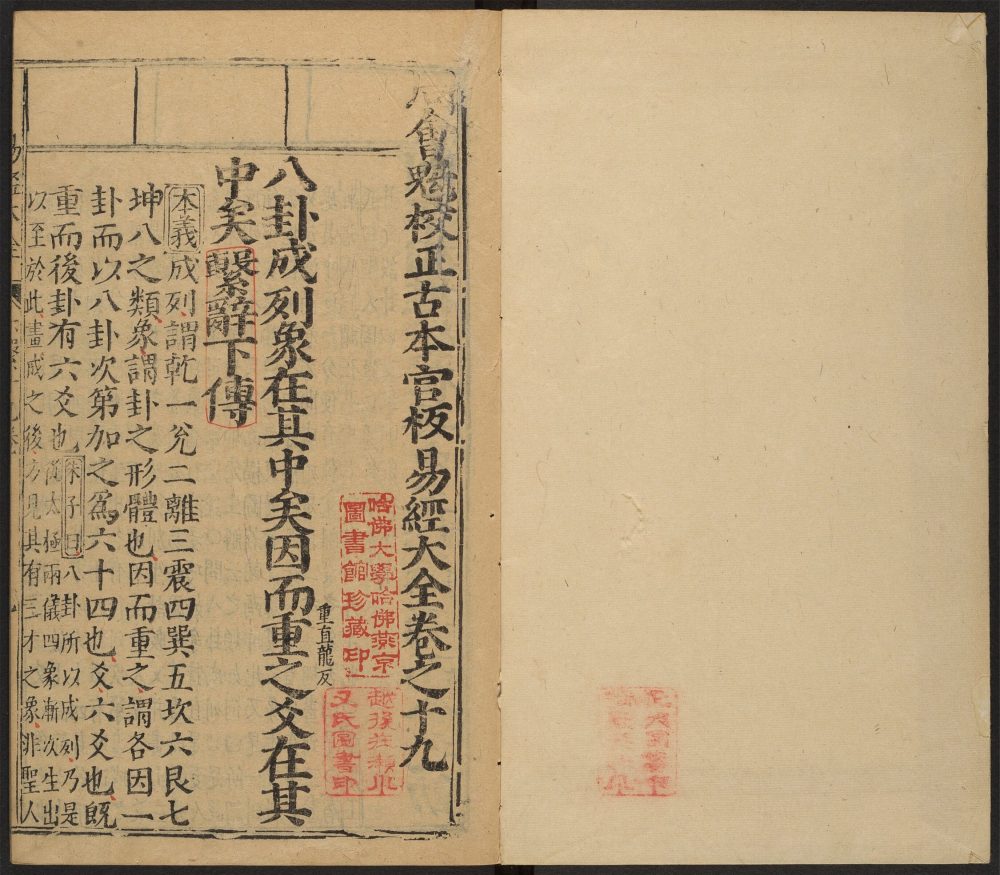 會魁校正古本官板易經大全卷之十九
八卦成列象在其中矣因而重之爻在其
重直龍反
中矣繫辭下傳
本義成列謂乾一兌二離三震四巽五坎六艮七
坤八之類象謂卦之形體也因而重之謂各因一
卦而以八卦次第加之為六十四也爻六爻也旣
重而後卦有六爻也朱子曰八卦所以成列乃是
從太極兩儀四象漸次生出
以至於此畫成之後方見其有三才之象非聖人
哈佛大學哈佛燕京
圖書館珍藏印
文氏圖書印